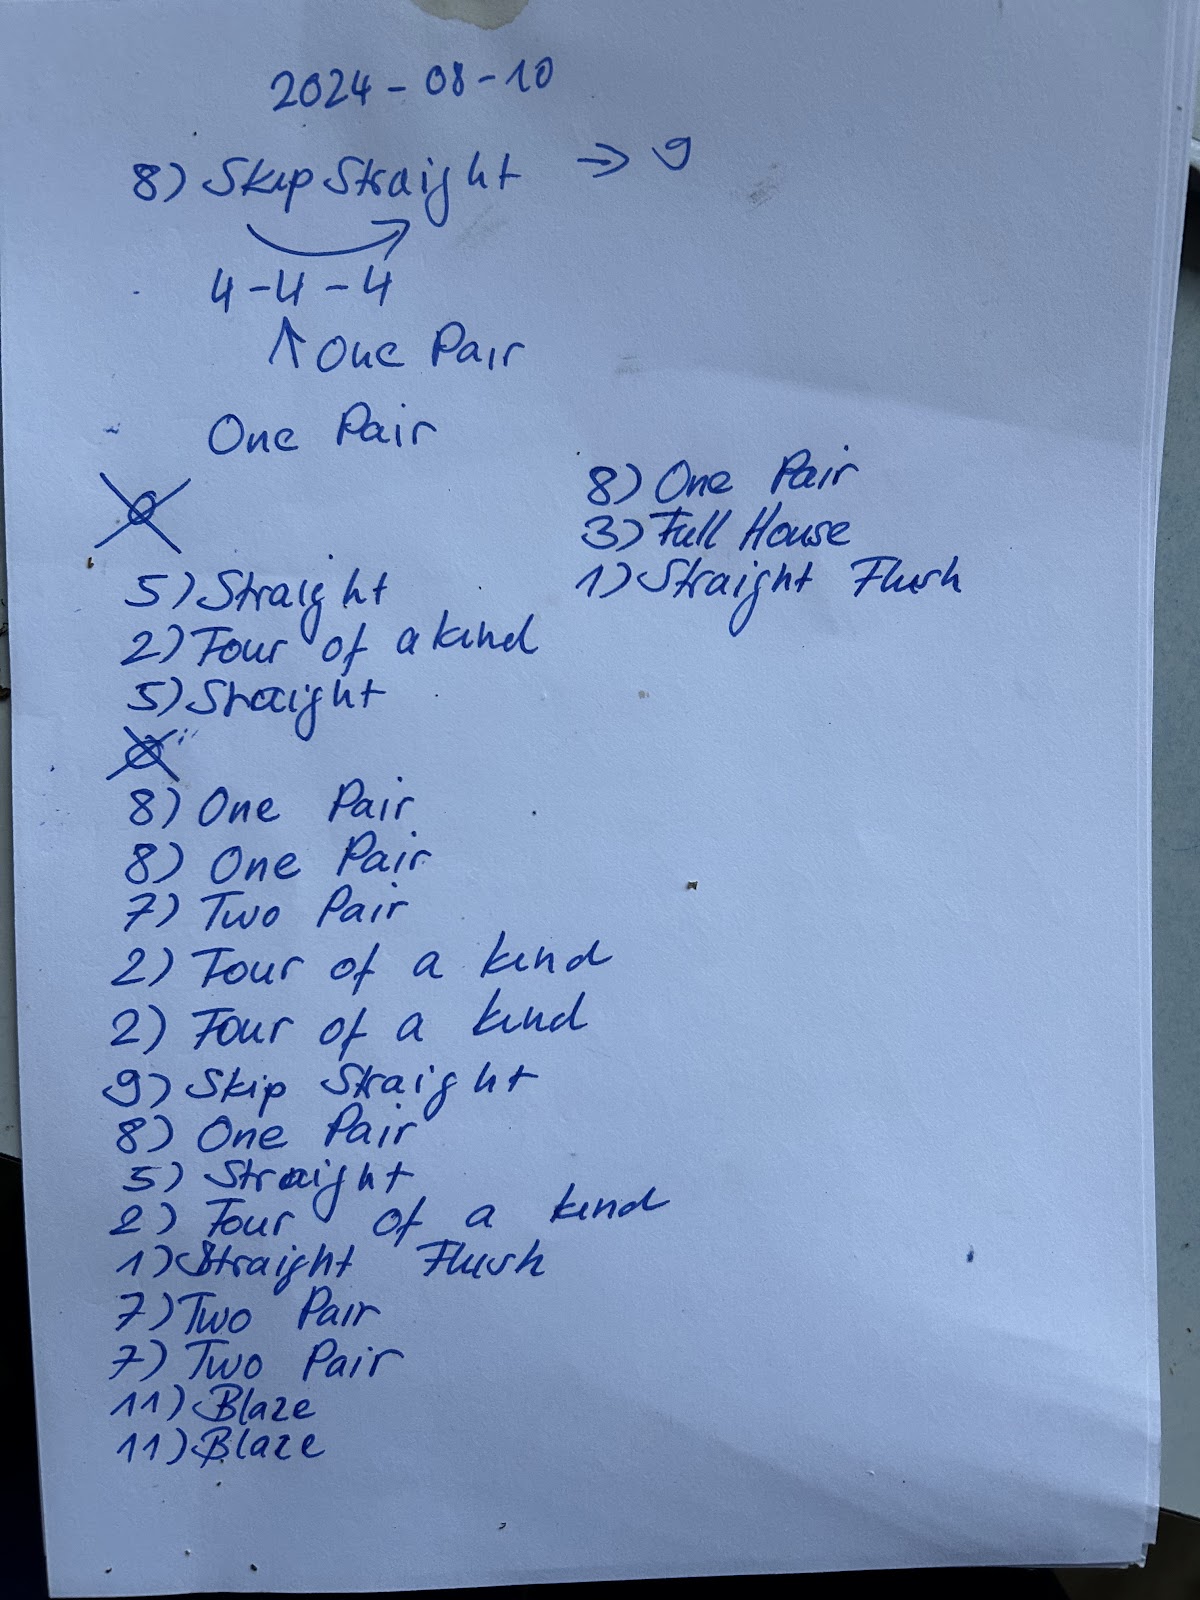 2024-08-10
8) Skip Straight → 9
4-4-4
↑ One Pair
One Pair
5) Straight
2) Four of a kind
5) Straight
8) One Pair
8) One Pair
7) Two Pair
2) Four of a kind
2) Four of a kind
9) Skip Straight
8) One Pair
5) Straight
2) Four of a kind
1) Straight Flush
7) Two Pair
7) Two Pair
11) Blaze
11) Blaze
8) One Pair
3) Full House
1) Straight Flush